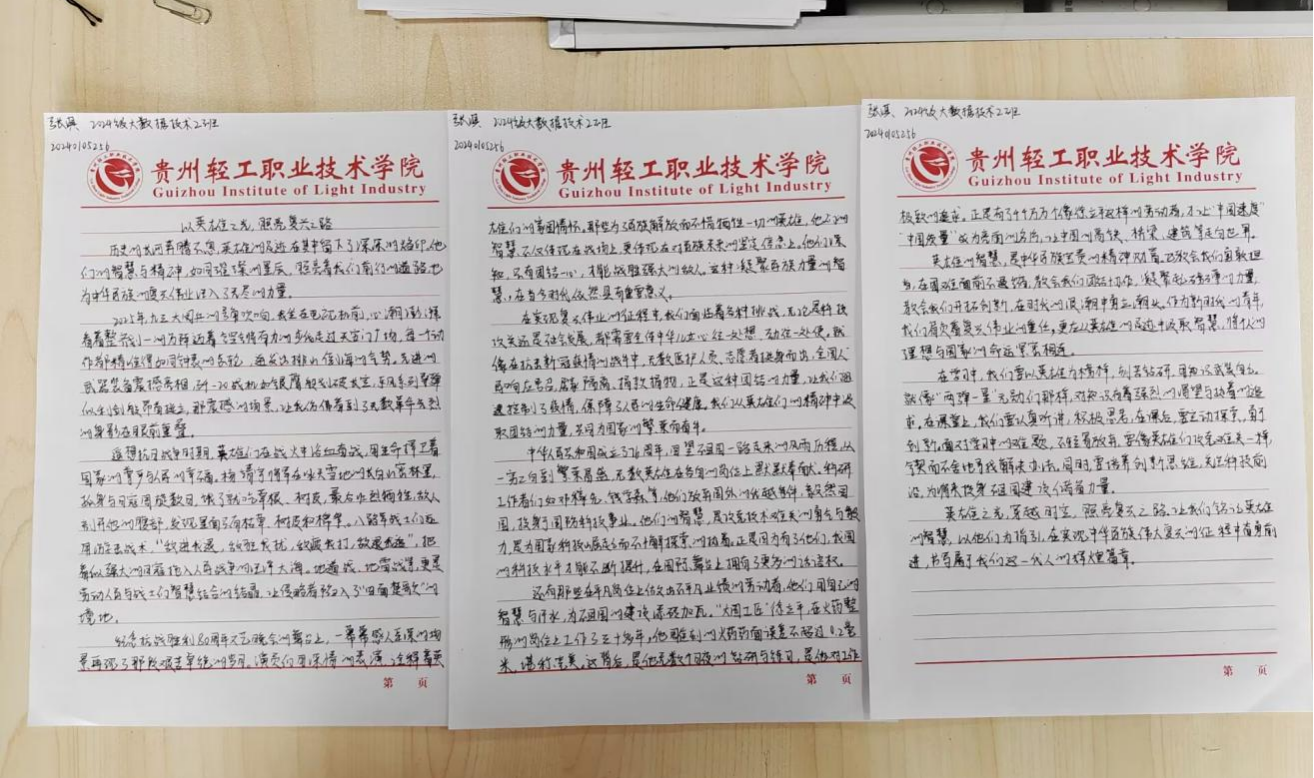 2024级大数据技术2班
20240105256
贵州轻工职业技术学院
Guizhou Institute of Light Industry
以英雄之光,照亮复兴之路
历史的长河奔腾不息,英雄的足迹在其中留下了深深的烙印,他
们的智慧与精神,如同璀璨的星辰,照亮着我们前行的道路,也
为中华民族的复兴伟业注入了无尽的力量。
2025年九三大阅兵的号角吹响,我坐在电视机前,心潮澎湃,
看着整齐划一的方阵迈着铿锵有力的步伐走过天安门广场,每一个动
作都精准得如同钟表的齿轮,
武器装备震撼亮相,歼-20战机如银鹰般划破长空,东风系列导弹
似利剑般昂首挺立,那震撼的场景,让我仿佛看到了无数革命先烈
的身影在眼前重叠。
遥想抗日战争时期,英雄们在战火中浴血奋战,用生命捍卫着
国家的尊严与人民的幸福。杨靖宇将军在冰天雪地的长白山密林里,
孤身与日寇周旋数日,饿了就吃草根、树皮,最后壮烈牺牲,敌人
剖开他的腹部,发现里面只有枯草、树皮和棉絮。八路军战士们运
用游击战术,“敌进我退,敌驻我扰,敌疲我打,敌退我追”,把
看似强大的日寇拖入人民战争的汪洋大海。地道战、地雷战等,更是
劳动人民与战士们智慧结合的结晶,让侵略者陷入了“四面楚歌”的
境地。
纪念抗战胜利80周年文艺晚会的舞台上,一幕幕感人至深的场
景再现了那段艰苦卓绝的岁月,演员们用深情的表演,诠释着英
第 页
2024级大数据技术2班
20240105256
贵州轻工职业技术学院
Guizhou Institute of Light Industry
雄们的家国情怀。那些为了民族解放而不惜牺牲一切的英雄,他们的
智慧,不仅体现在战场上,更体现在对民族未来的坚定信念上,他们深
知,只有团结一心,才能战胜强大的敌人。这种凝聚民族力量的智
慧,在当今时代依然具有重要意义。
在实现复兴伟业的征程中,我们面临着各种挑战,无论是科技
攻关还是社会发展,都需要全体中华儿女心往一处想,劲往一处使。就
像在抗击新冠疫情的战斗中,无数医护人员、志愿者挺身而出,全国人
民响应号召,居家隔离,捐款捐物,正是这种团结的力量,让我们迅
速控制了疫情,保障了人民的生命健康。我们从英雄们的精神中汲
取团结的力量,共同为国家的繁荣而奋斗。
中华人民共和国成立了76周年,回望祖国一路走来的风雨历程,从
一穷二白到繁荣昌盛,无数英雄在各自的岗位上默默奉献。科研
工作者们如邓稼先、钱学森等,他们放弃国外的优越条件,毅然回
国,投身于国防科技事业。他们的智慧,是攻克技术难关的勇气与毅
力,是为国家科技崛起而不懈探索的执着。正是因为有了他们,我国
的科技水平才能不断提升,在国际舞台上拥有了更多的话语权。
还有那些在平凡岗位上做出不平凡业绩的劳动者,他们用自己的
智慧与汗水,为祖国的建设添砖加瓦。“大国工匠”徐立平,在火药整
形的岗位上工作了三十多年,他雕刻的火药药面误差不超过0.2毫
米,堪称完美。这背后,是他无数个日夜的钻研与练习,是他对工作
第 页
2024级大数据技术2班
20240105256
贵州轻工职业技术学院
Guizhou Institute of Light Industry
极致的追求。正是有了千千万万个像徐立平这样的劳动者,才让“中国速度”
“中国质量”成为亮丽的名片,让中国的高铁、桥梁、建筑等走向世界。
英雄的智慧,是中华民族宝贵的精神财富。它教会我们勇敢担
当,在困难面前不退缩,教会我们团结协作,凝聚起磅礴的力量,
教会我们开拓创新,在时代的浪潮中勇立潮头。作为新时代的青年,
我们肩负着复兴伟业的重任,更应从英雄的足迹中汲取智慧,将个人的
理想与国家的命运紧密相连。
在学习中,我们要以英雄为榜样,刻苦钻研,用知识武装自己。
就像“两弹一星”元勋们那样,对知识有着强烈的渴望与执着的追
求。在课堂上,我们要认真听讲,积极思考,在课后,要主动探索,勇于
创新,面对学习中的难题,不轻言放弃,要像英雄们攻克难关一样,
锲而不舍地寻找解决办法。同时,要培养创新思维,关注科技前
沿,为将来投身祖国建设积蓄力量。
英雄之光,穿越时空,照亮复兴之路,让我们铭记英雄
的智慧,以他们为指引,在实现中华民族伟大复兴的征程中奋勇前
进,书写属于我们这一代人的辉煌篇章。
第 页